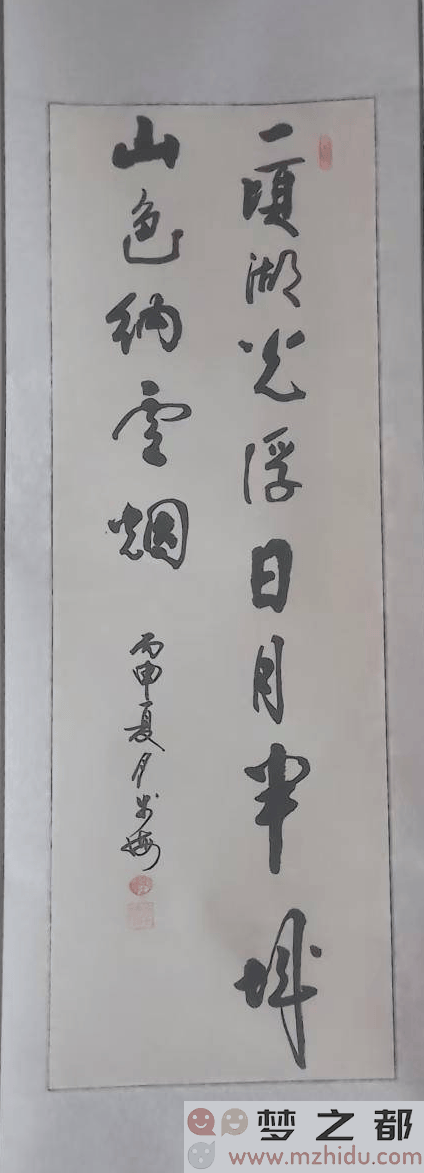 一頃湖光浮日月半城
山色纳雲烟
丙申夏月
梦之都
www.mzhidu.com